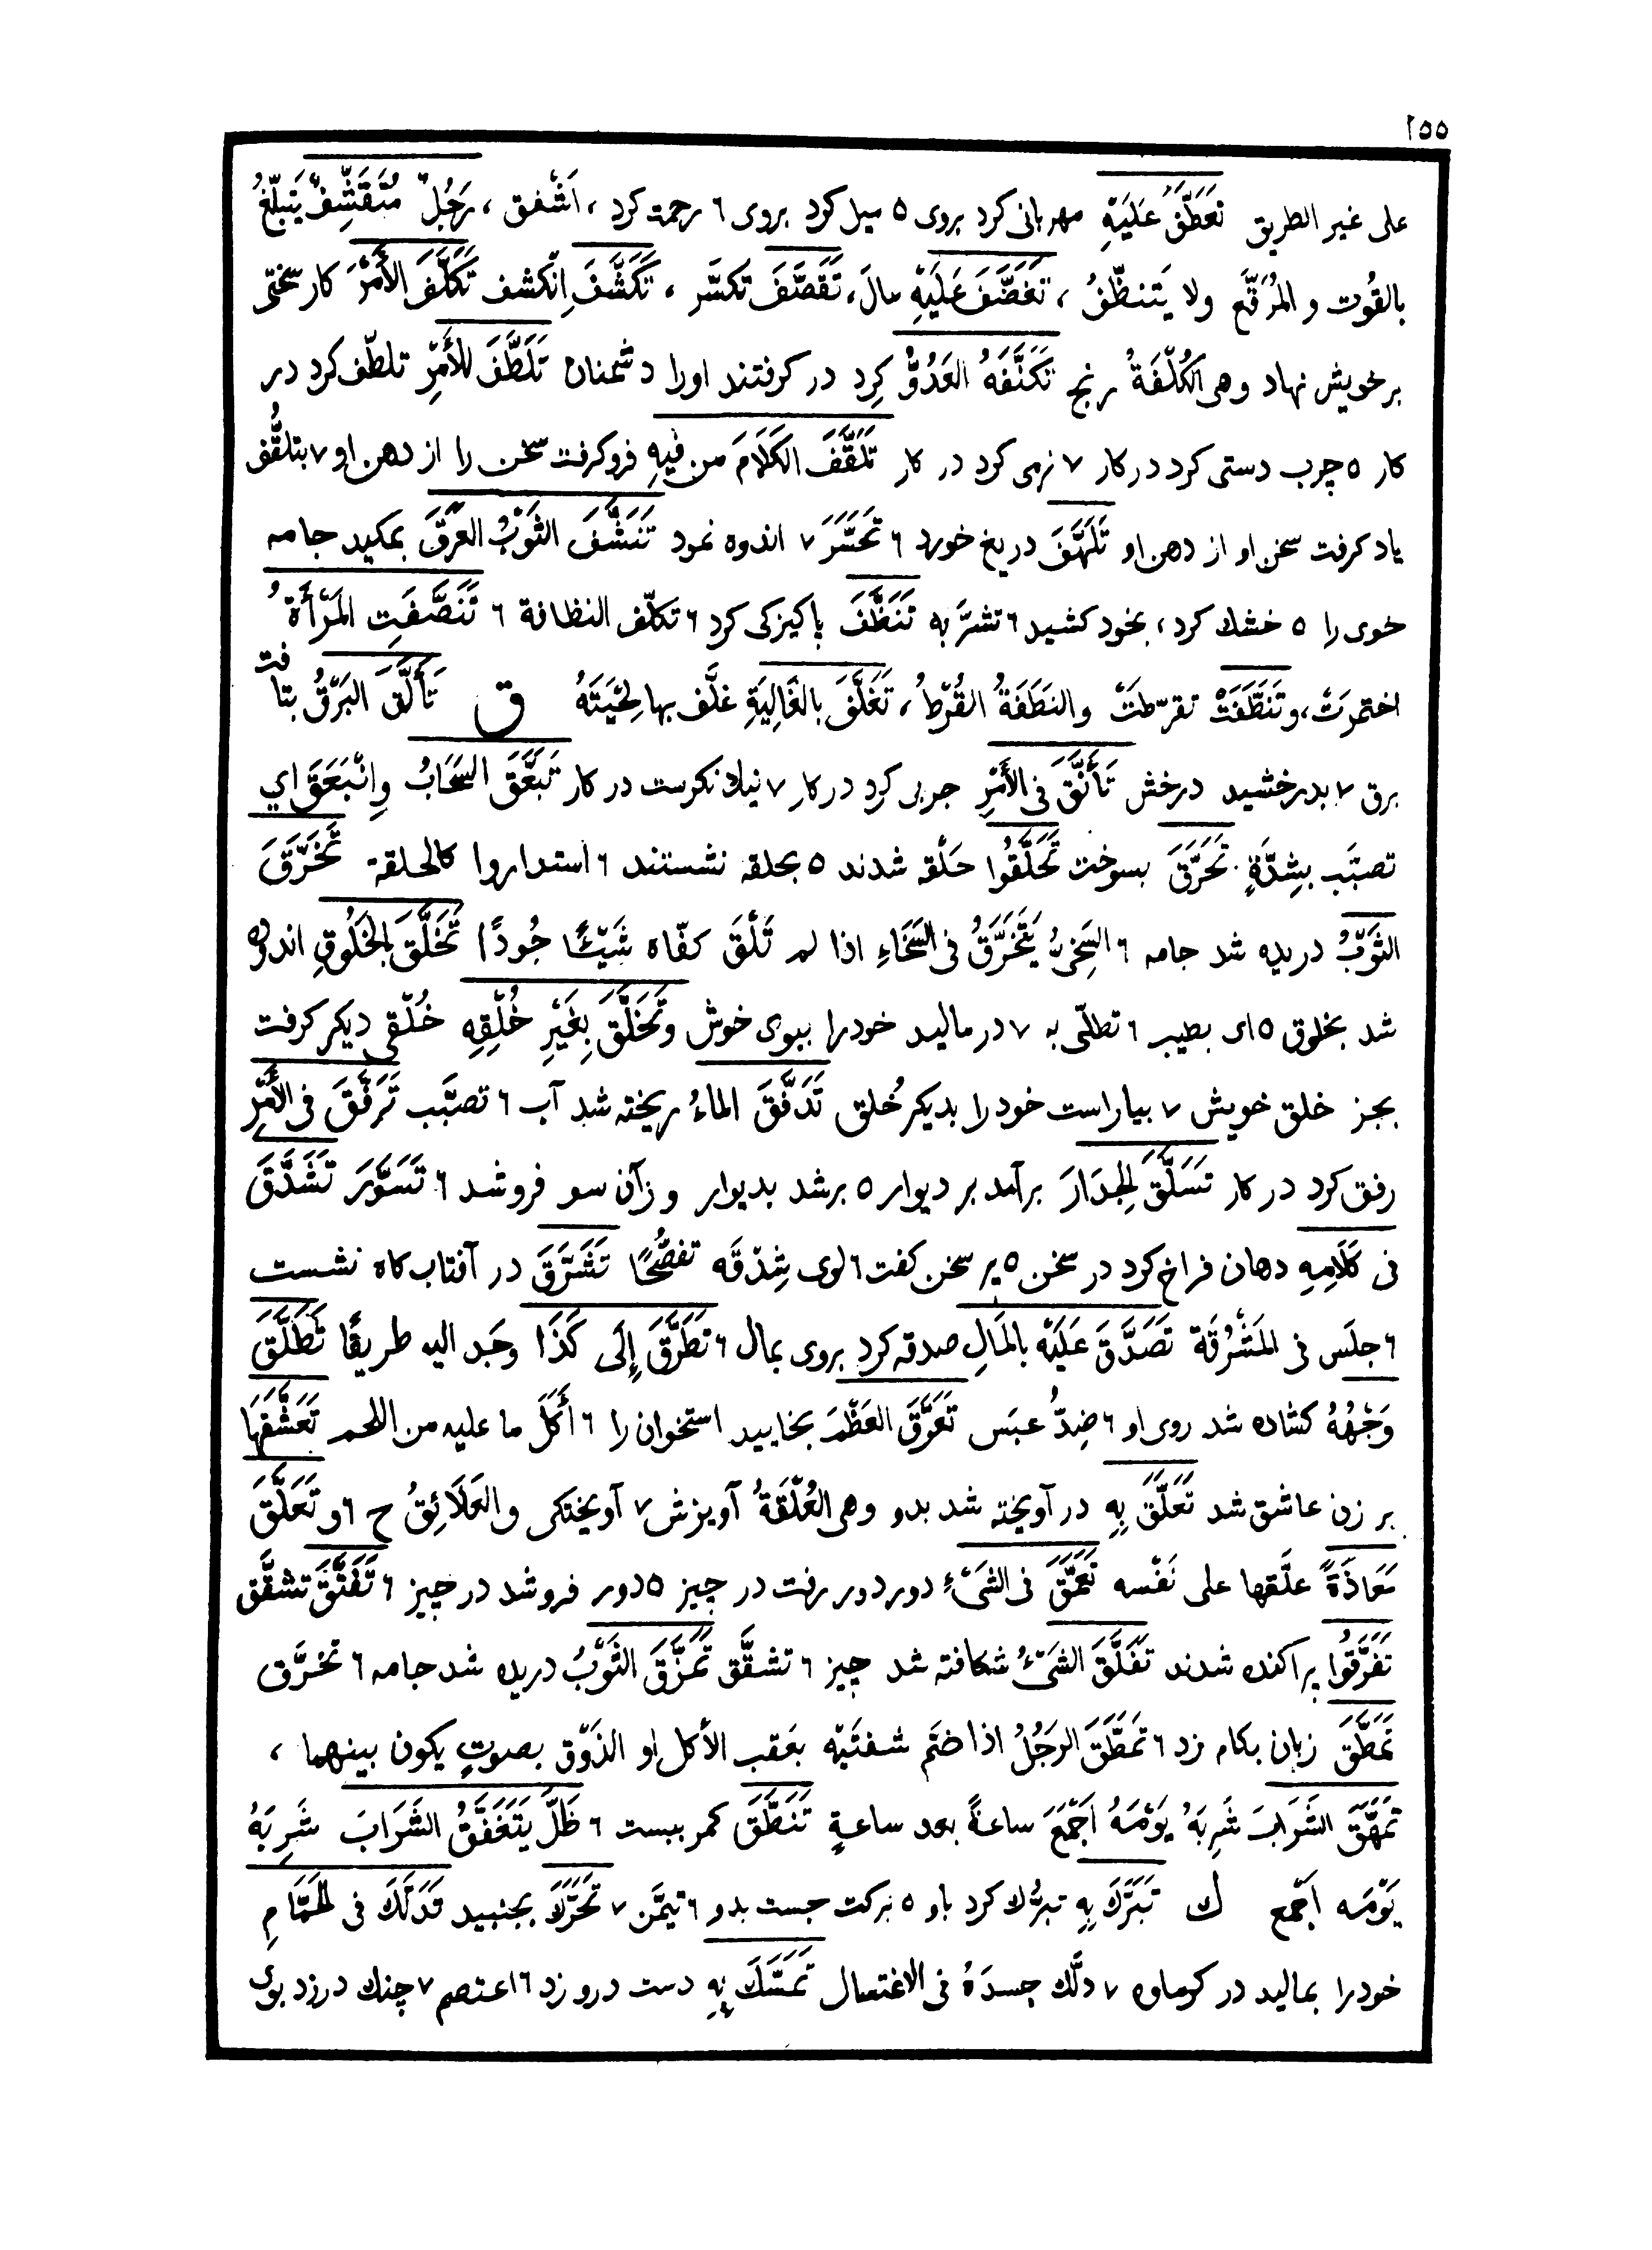 ٢٥٥
على غير الطريق تَعَطَّفَ عَلَيْهِ مهربانى كرد بروى ٥ ميل كرد بروى ٦ رحمت كرد ، اَشْفق ، رَجُلٌ مُتَقَشِّفٌ يَتبلّغُ
بالقُوت و المُرَقَّع ولا يَتنظّفُ ، تَغَضَّفَ عَلَيْهِ مالَ، تَقَصَّفَ تكسَّر ، تَكَشَّفَ اِنْكشف تَكَلَّفَ الأَمْرَ كار سختى
بر خويش نهاد وهى الكُلْفَةُ رنج تَكَنَّفَهُ العَدُوُّ كِرد در كرفتند اورا دشمنان تَلَطَّفَ لِلأَمْرِ تلطّف كرد در
كار ٥ چرب دستى كرد در كار ٧ نرمى كرد در كار تَلَقَّفَ الكَلَامَ من فيهِ فرو كرفت سخن را از دهن او ٧ بتلقُّف
ياد كرفت سخن او از دهن او تَلَهَّفَ دريغ خورد ٦ تَحَسَّرَ ٧ اندوه نمود تَنَشَّفَ الثَوْبُ العَرَقَ بمكيد جامه
خوى را ٥ خشك كرد ، بخود كشيد ٦ تشرَّبه تَنَظَّفَ پاكيزكى كرد ٦ تكلّف النظافة ٦ تَنَصَّفَتِ المَرْأَةُ
اختمرَتْ ، وتَنَطَّفَتْ تقرّطتْ والنَطَفَةُ القُرْطُ ، تَغَلَّفَ بالغَالِيَةِ غلَّف بها لِحْيَتَهُ ق تَأَلَّقَ البَرْقُ بتافت
برق ٧ بدرخشيد درخش تَأَنَّقَ فى الأَمْرِ جربى كرد در كار ٧ نيك نكرست در كار تَبَعَّقَ السَحَابُ وانْبَعَقَ اي
تصبَّب بِشِدَّةٍ تَحَرَّقَ بسوخت تَحَلَّقُوا حَلْقه شدند ٥ بحلقه نشستند ٦ استداروا كالحلقة تَخَرَّقَ
الثَوْبُ دريده شد جامه ٦ السَخِىُّ يَتَخَرَّقُ فى السَخَاءِ اذا لم تَلْقَ كفّاه شَيْئًا جُودًا تَخَلَّقَ بالخَلُوقِ اندوه
شد بخلوق ٥ اى بطيب ٦ تطلّى به ٧ در ماليد خودرا ببوى خوش وتَخَلَّقَ بِغَيْرِ خُلْقِهِ خُلْقى ديكر كرفت
بجز خلق خويش ٧ بياراست خودرا بديكر خُلق تَدَفَّقَ الماءُ ريخته شد آب ٦ تصبَّب تَرَفَّقَ فى الأَمْرِ
رفق كرد در كار تَسَلَّقَ الجِدَارَ برآمد بر ديوار ٥ برشد بديوار و زآن سو فروشد ٦ تَسَوَّرَ تَشَدَّقَ
فى كَلَامِهِ دهان فراخ كرد در سخن ٥ پر سخن كفت ٦ لوى شِدْقَه تفصُّحًا تَشَرَّقَ در آفتاب كاه نشست
٦ جلَس فى المَشْرُقَة تَصَدَّقَ عَلَيْه بالمَالِ صدقه كرد بروى بمال ٦ تَطَرَّقَ إِلَى كَذَا وجَد اليه طريقًا تَطَلَّقَ
وَجْهُهُ كشاده شد روى او ٦ ضِدُّ عبَس تَعَرَّقَ العَظْمَ بخاييد استخوان را ٦ أَكَلَ ما عليه من اللحم تَعَشَّقَهَا
بر زن عاشق شد تَعَلَّقَ بِهِ در آويخته شد بدو وهى العُلْقَةُ آويزش ٧ آويختكى والعَلَائِقُ ح ٦ و تَعَلَّقَ
مَعَاذَةً علَّقها على نَفْسه تَعَمَّقَ فى الشَىْءِ دور دور رفت در چيز ٥ دور فروشد در چيز ٦ تَفَتَّقَ تشقَّق
تَفَرَّقُوا پراكنده شدند تَفَلَّقَ الشَىْءُ شكافته شد چيز ٦ تشقَّق تَمَزَّقَ الثَوْبُ دريده شد جامه ٦ تخرَّق
تَمَطَّقَ زبان بكام زد ٦ تَمَطَّقَ الرَجُلُ اذا ضَم شفتَيْه بعَقب الأكل او الذَوْق بصوتٍ يكون بينهما ،
تَمَهَّقَ الشَرَابَ شَرِبَهُ يَوْمَهُ اَجْمَعَ ساعةً بعد ساعةٍ تَنَطَّقَ كمر ببست ٦ ظَلَّ يَتَغَفَّقُ الشَرَابَ شَرِبَهُ
يَوْمَه اَجْمع ك تَبَرَّكَ بِهِ تبرُّك كرد باو ٥ بركت جست بدو ٦ تيمَّن ٧ تَحَرَّكَ بجنبيد تَدَلَّكَ فى الحَمَّامِ
خودرا بماليد در كرماوه ٧ دلَّك جسدَهُ فى الاغتسال تَمَسَّكَ بِهِ دست درو زد ٦ اعتصم ٧ چنك در زد بوى